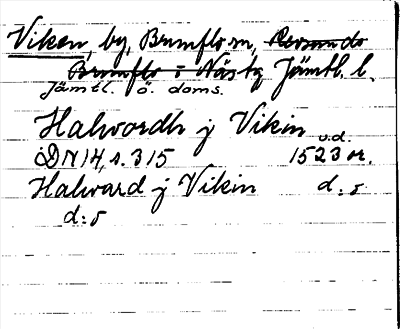 Viken, by, Brunflo sn, Revsunds
Brunflo o Näsky Jämtl. l.
Jämtl. ö. doms.
Halvordh j Vikin
u.d.
DN 14, s. 315 1523 or.
Halvard j Vikin d:o
d:o